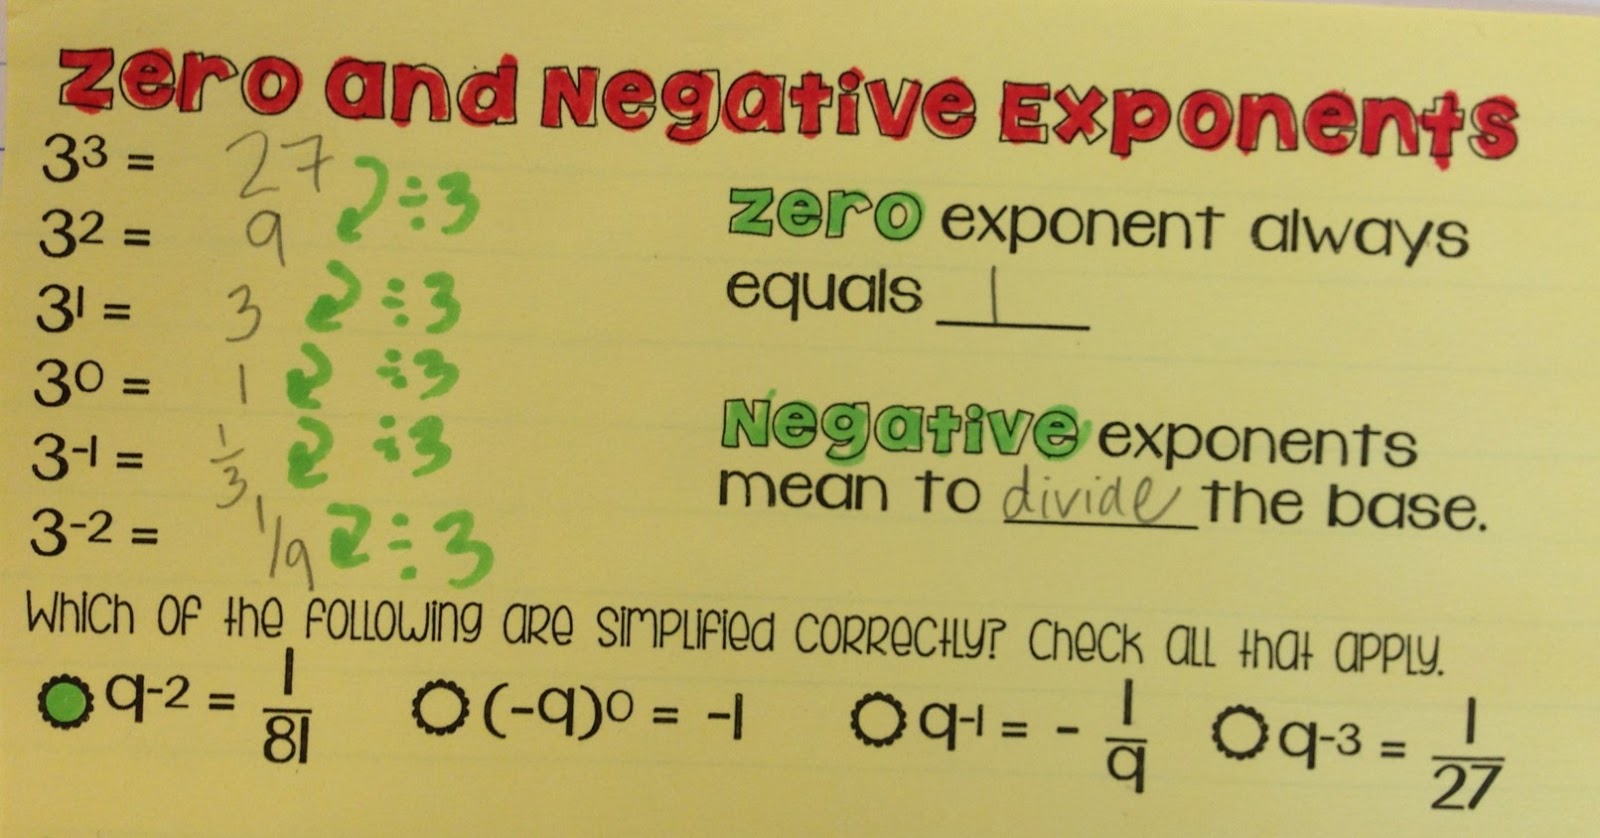 Zero and Negative Exponents
3³ = 27 ÷3
3² = 9
3¹ = 3 ÷3
3⁰ = 1 ÷3
3⁻¹ = 1/3 ÷3
3⁻² = 1/9 ÷3
Zero exponent always
equals 1
Negative exponents
mean to divide the base.
Which of the following are simplified correctly? Check all that apply.
9⁻² = 1/81 (-9)⁰ = -1 9⁻¹ = - 1/9 9⁻³ = 1/27